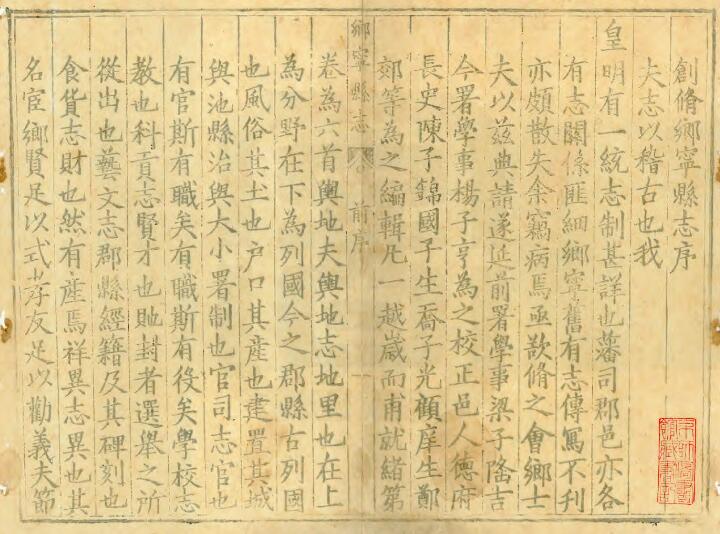 創脩鄉寧縣志序
夫志以稽古也我
皇明有一統志制甚詳也藩司郡邑亦各
有志關係匪細鄉寧舊有志傳寫不刋
亦頗散失余竊病焉亟欲脩之會鄉士
夫以兹典請遂延前署學事梁子隆吉
今署學事楊子亨為之校正邑人德府
長史陳子錦國子生喬子光顧庠生鄭
郊等為之編輯凡一越歲而甫就緒第
鄉寧縣志 前序 一
卷為六首輿地夫輿地志地里也在上
為分野在下為列國今之郡縣古列國
也風俗其土也户口其產也建置其城
與池縣治與大小署制也官司志官也
有官斯有職矣有職斯有役矣學校志
教也科貢志賢才也貤封者選舉之所
從出也藝文志郡縣經籍及其碑刻也
食貨志財也然有産焉祥異志異也其
名宦鄉賢足以式孝友足以勸義夫節